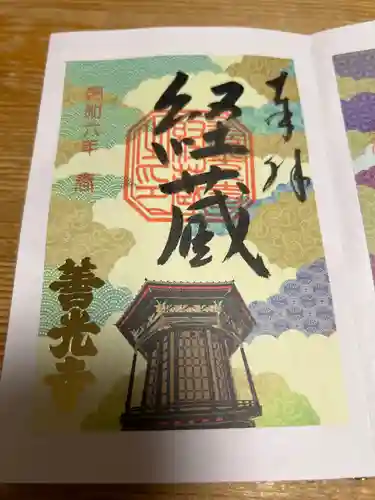 奉拝
経蔵
令和六年
善光寺